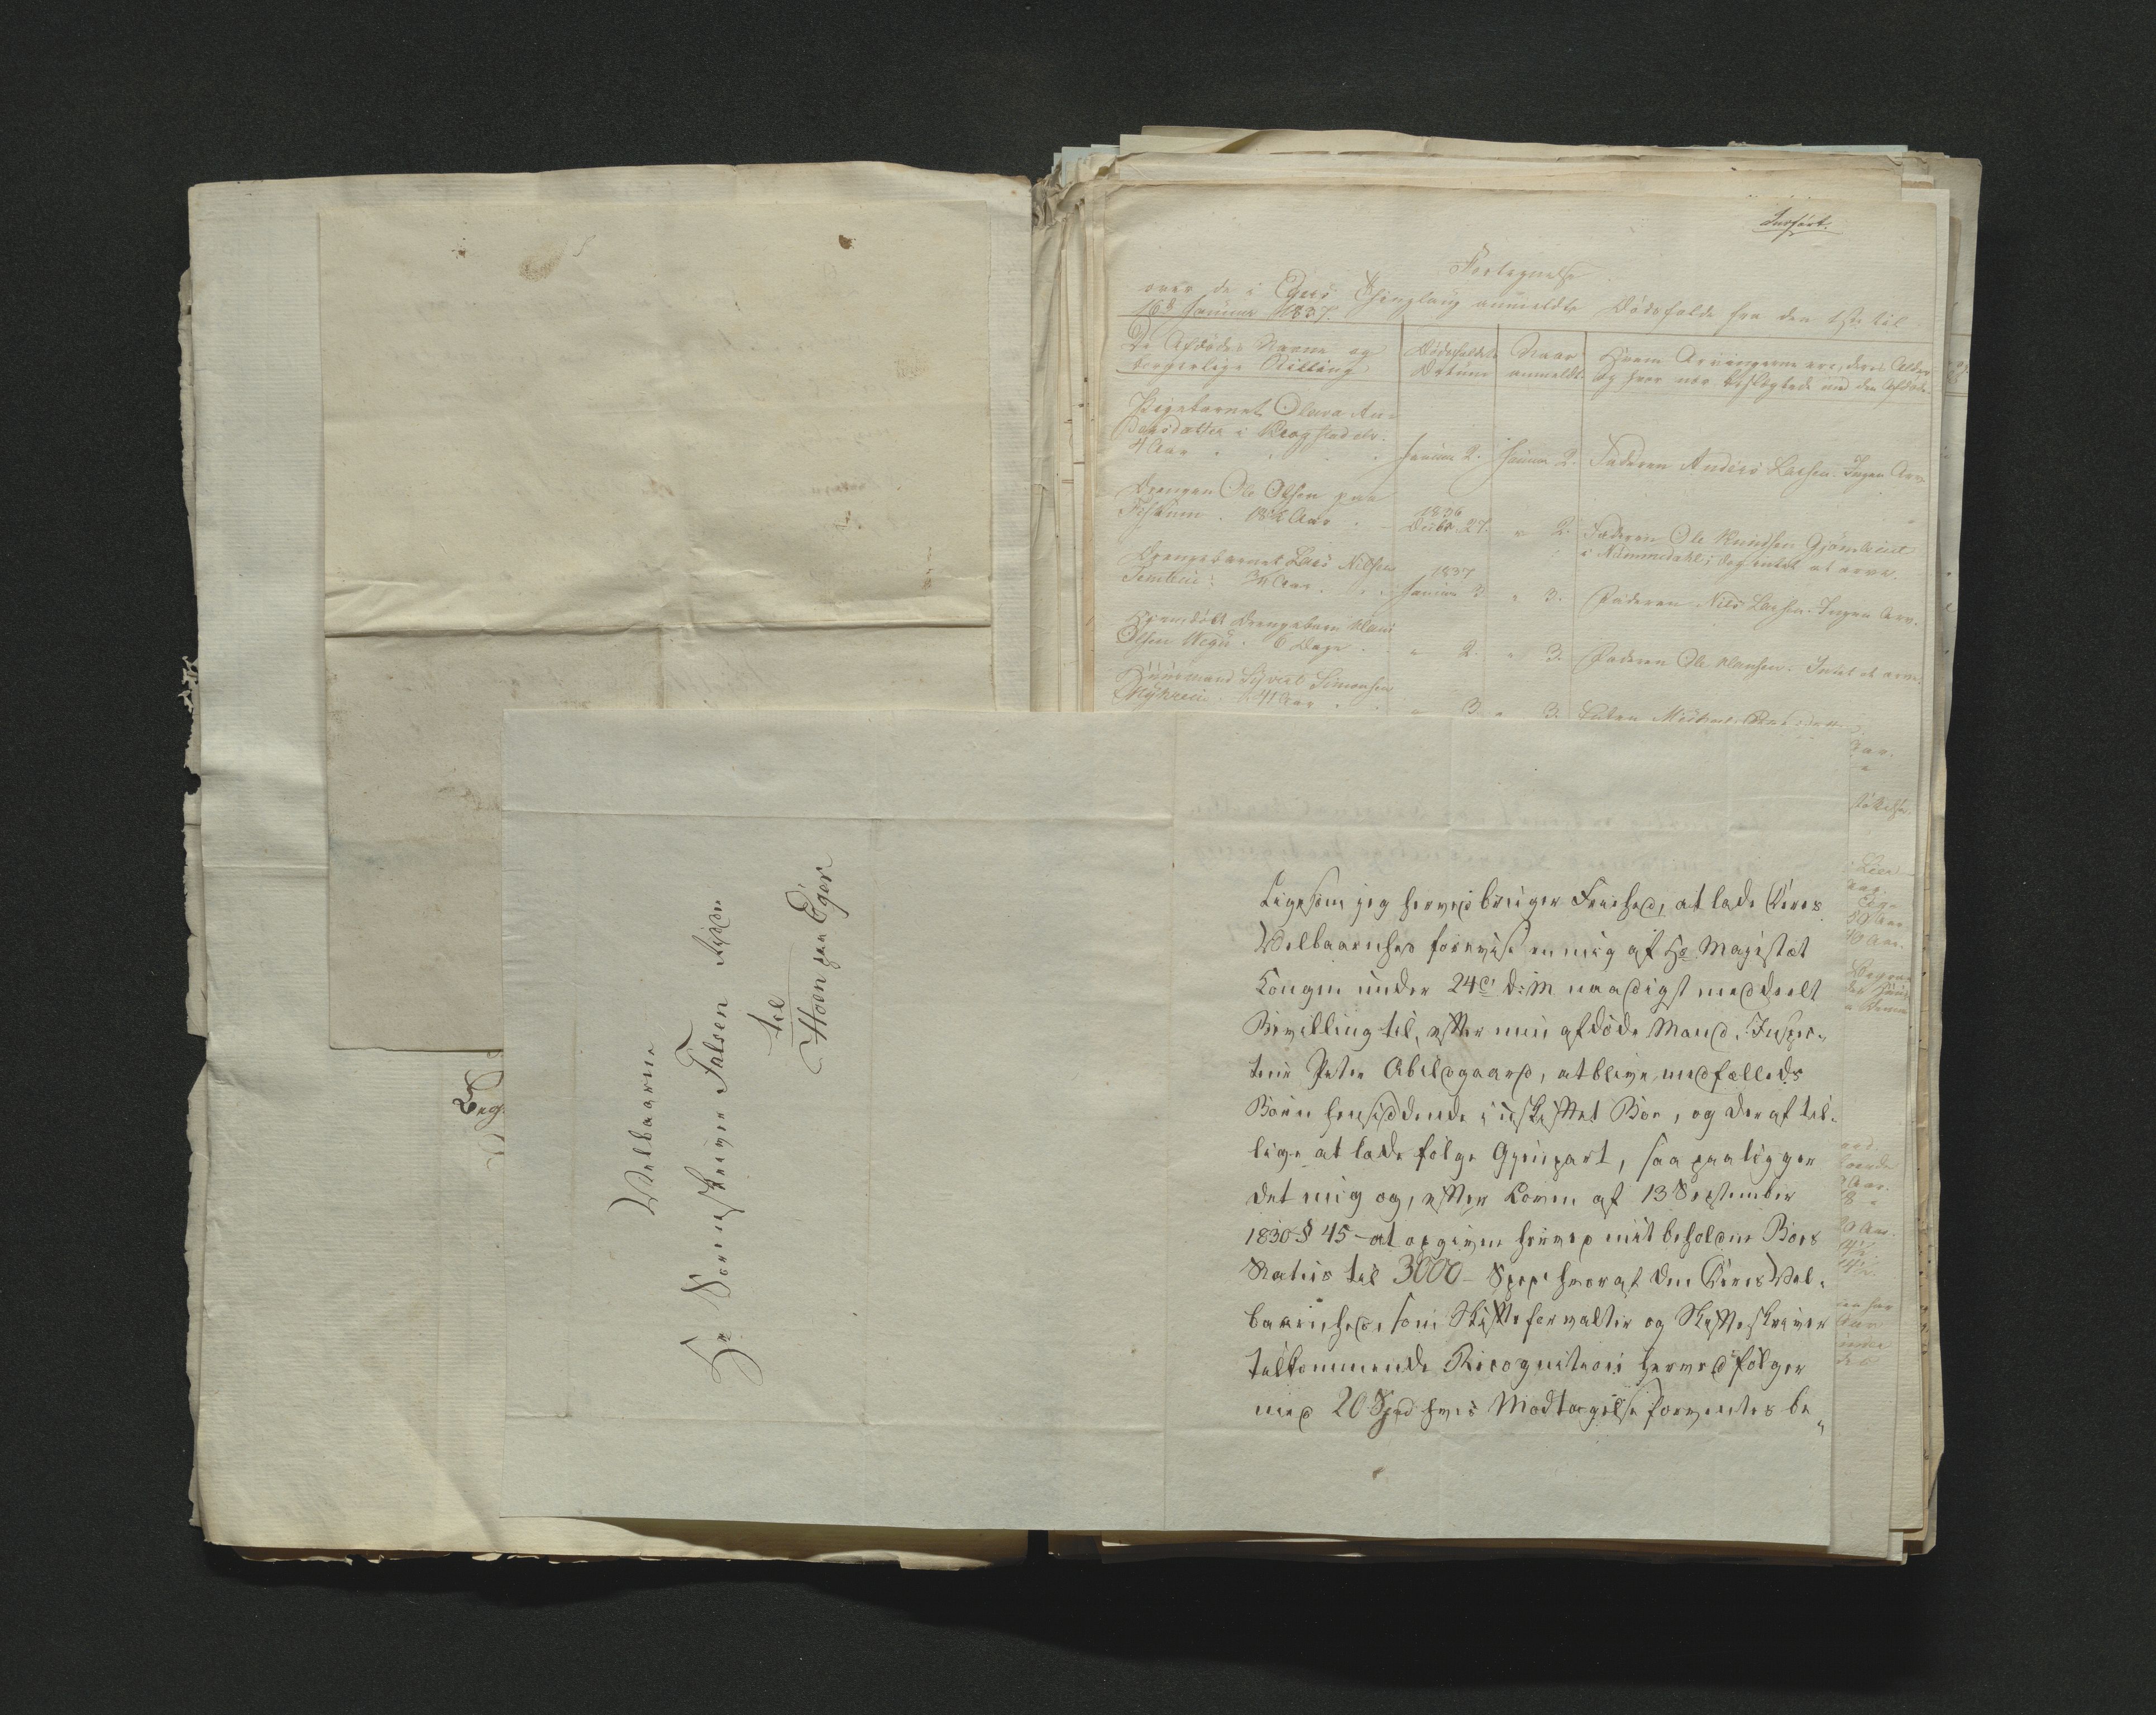 Indført.
Fortegnelse
over de i Egers Thinglaug anmeldte Dødsfalde fra den 1ste til
16de Januar 1837.
De Afdødes Navne og
borgerlige Stilling
Dødsfaldets
Datum
Naar
anmeldt.
Hvem Arvingerne ere, deres Alder
og hvor nær beslægtede med den Afdøde
Pigebarnet Olava An-
dersdatter i Krogstadelv.
4 Aar
Januar 2.
Januar 2.
Faderen Anders Larsen. Ingen Arv
Drengen Ole Olsen paa
Fiskum. 18½ Aar
1836
Decbr 27.
" 2.
Faderen Ole Knudsen
i Nummedahl; dog intet at arve.
Drengebarnet Lars Nilsen
1837
Januar 3.
" 3.
Faderen Niels Larsen. Ingen Arv.
Drengebarn Klaus
Olsen 6 Dage
" 2.
" 3.
Faderen Ole Klausen. Intet at arve.
Huusmand Syvert Simonsen
41 Aar
" 3.
" 3.
Enken
Velbaarne
Hr Sorenskriver Falsen Ridder
til
Hoen paa Eger
Beg.
Ligesom jeg herved bruger Friehed, at lade Deres
Velbaarnhed forevise en mig af Hs Majestæt
Kongen under 24de d: M. naadigst meddeelt
Bevilling til, efter min afdøde Mand, Inspec-
teur Peter Abildgaard, at blive med fælleds
Børn hensiddende i uskiftet Boe, og deraf til-
lige at lade følge Gjenpart, saa paaligger
det mig og, efter Loven af 13 September
1830 § 45 - at opgive herved mit beholdne Boes
Status til 3000 - Spd hvoraf den Deres Vel-
baarnhed, som Skifteforvalter og Skifteskriver
tilkommende Recognition herved følger
med 20 Spd hvis Modtagelse forventes be-